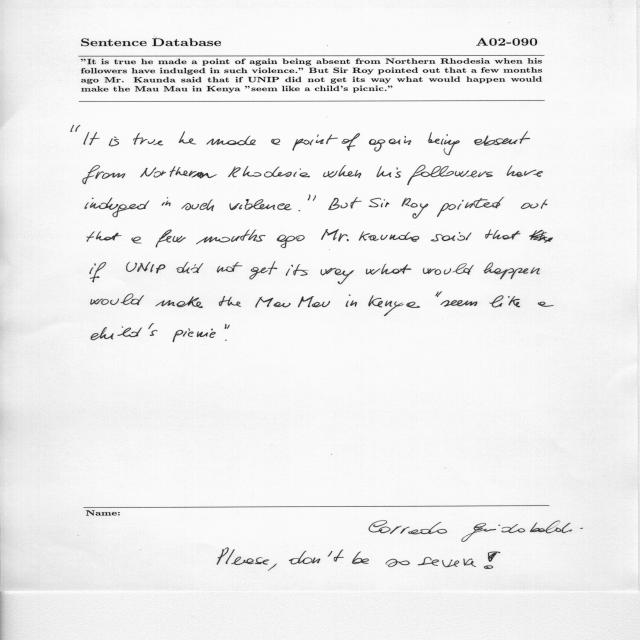 Sentence Database A02-090
"It is true he made a point of again being absent from Northern Rhodesia when his
followers have indulged in such violence." But Sir Roy pointed out that a few months
ago Mr. Kaunda said that if UNIP did not get its way what would happen would
make the Mau Mau in Kenya "seem like a child's picnic."
"It is true he made a point of again being absent
from Northern Rhodesia when his followers have
induged in such violence." But Sir Roy pointed out
that a few months ago Mr. Kaunda said that
if UNIP did not get its way what would happen
would make the Mau Mau in Kenya "seem like a
child's picnic".
Name:
Corrado Guidobaldi
Please, don't be so severe!